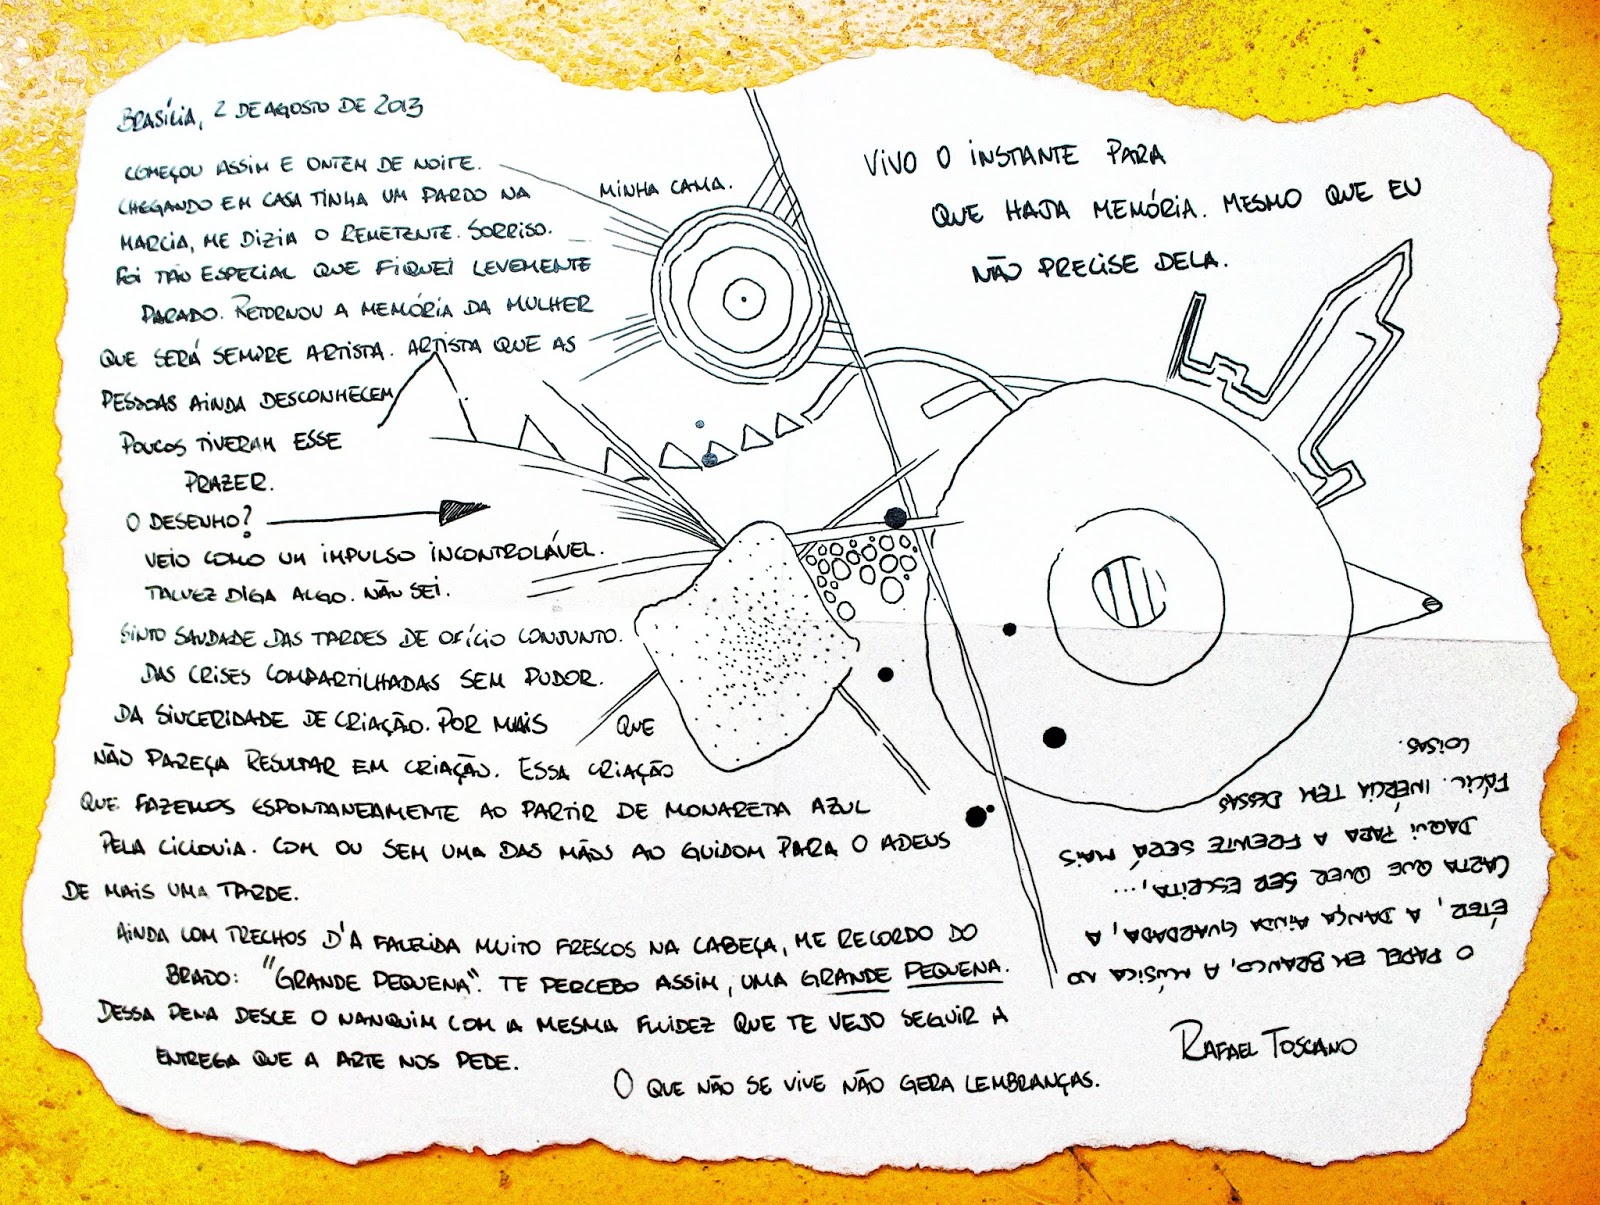 BRASÍLIA, 2 DE AGOSTO DE 2013
COMEÇOU ASSIM E ONTEM DE NOITE.
CHEGANDO EM CASA TINHA UM PARDO NA MINHA CAMA.
MARCIA, ME DIZIA O REMETENTE. SORRISO.
FOI TÃO ESPECIAL QUE FIQUEI LEVEMENTE
PARADO. RETORNOU A MEMÓRIA DA MULHER
QUE SERÁ SEMPRE ARTISTA. ARTISTA QUE AS
PESSOAS AINDA DESCONHECEM
POUCOS TIVERAM ESSE
PRAZER.
O DESENHO?
VEIO COMO UM IMPULSO INCONTROLÁVEL.
TALVEZ DIGA ALGO. NÃO SEI.
SINTO SAUDADE DAS TARDES DE OFÍCIO CONJUNTO.
DAS CRISES COMPARTILHADAS SEM PUDOR.
DA SINCERIDADE DE CRIAÇÃO. POR MAIS QUE
NÃO PAREÇA RESULTAR EM CRIAÇÃO. ESSA CRIAÇÃO
QUE FAZEMOS ESPONTANEAMENTE AO PARTIR DE MONARETA AZUL
PELA CICLOVIA. COM OU SEM UMA DAS MÃOS AO GUIDOM PARA O ADEUS
DE MAIS UMA TARDE.
AINDA COM TRECHOS D'A FALECIDA MUITO FRESCOS NA CABEÇA, ME RECORDO DO
BRADO: "GRANDE PEQUENA". TE PERCEBO ASSIM, UMA GRANDE PEQUENA.
DESSA PENA DESCE O NANQUIM COM A MESMA FLUIDEZ QUE TE VEJO SEGUIR A
ENTREGA QUE A ARTE NOS PEDE.
O QUE NÃO SE VIVE NÃO GERA LEMBRANÇAS.
VIVO O INSTANTE PARA
QUE HAJA MEMÓRIA. MESMO QUE EU
NÃO PRECISE DELA.
O PAPEL EM BRANCO, A MÚSICA NO
ÉTER, A DANÇA AINDA GUARDADA, A
CARTA QUE QUER SER ESCRITA,...
DAQUI PARA A FRENTE SERÁ MAIS
FÁCIL. INÉRCIA TEM DESSAS
COISAS.
RAFAEL TOSCANO